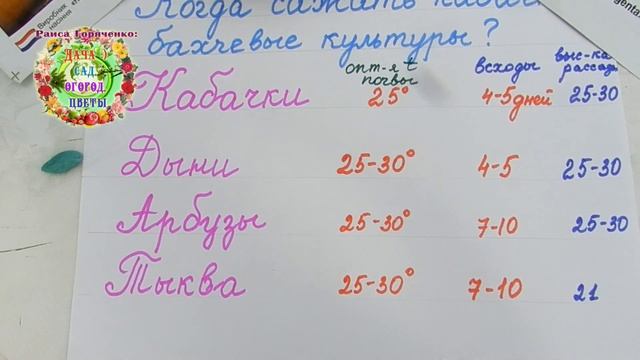 Виробник
насіння
genta
Раиса Горяченко:
ДАЧА :)
САД,
ОГОРОД,
ЦВЕТЫ
Когда сажать
бахчевые культуры?
опт-я t почвы всходы выс-ка рассады
Кабачки 25° 4-5дней 25-30
Дыни 25-30° 4-5 25-30
Арбузы 25-30° 7-10 25-30
Тыква 25-30° 7-10 21